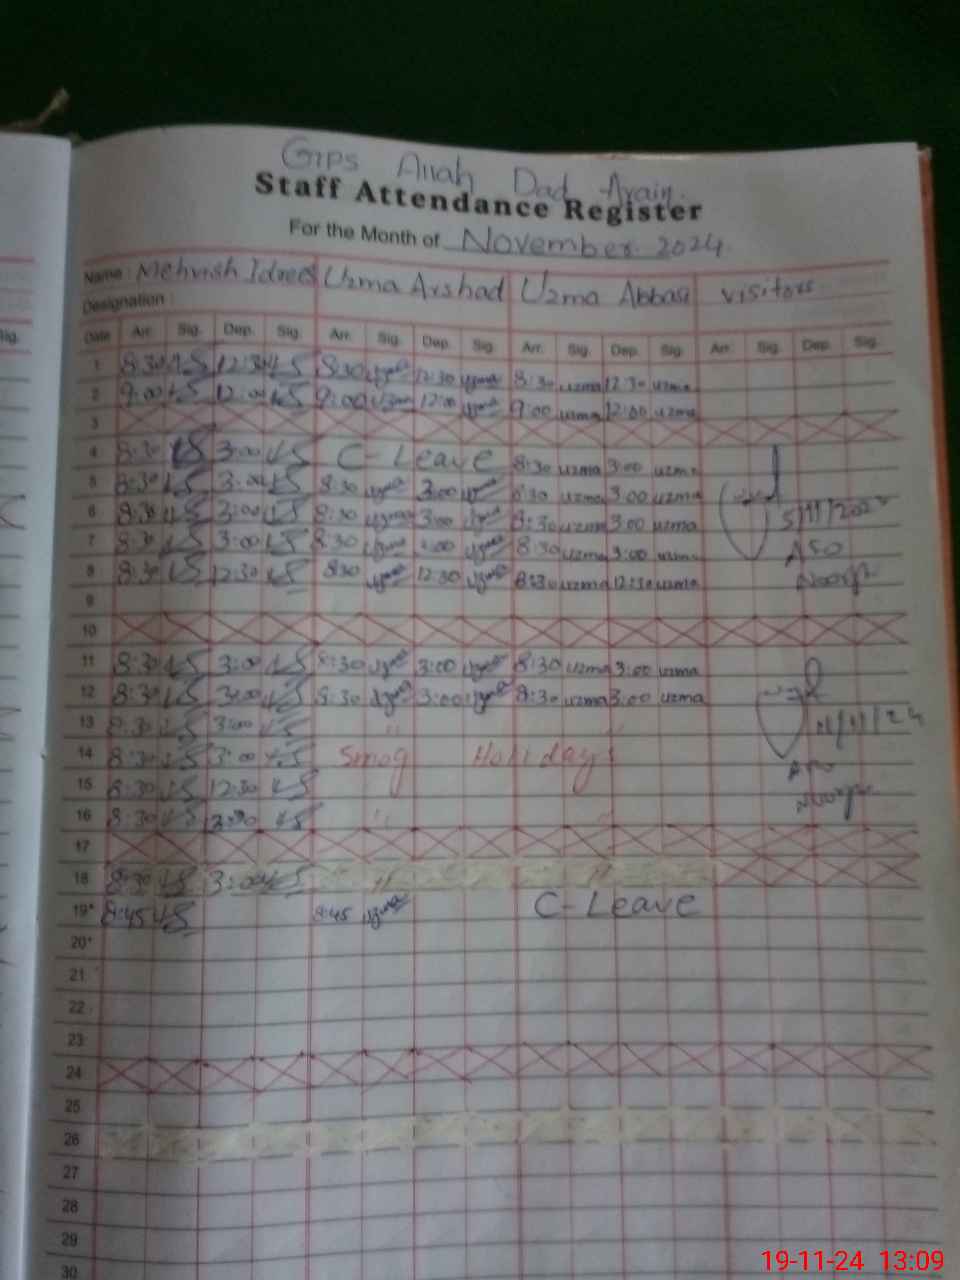 GIPS Allah Dad Arain.
Staff Attendance Register
For the Month of November 2024.
Name : Mehvish Idrees Uzma Arshad Uzma Abbasi visitors.
Designation :
Date Arr. Sig. Dep. Sig. Arr. Sig. Dep. Sig. Arr. Sig. Dep. Sig. Arr. Sig. Dep. Sig.
1 8:30 12:30 8:30 uzma 12:30 uzma 8:30 uzma 12:30 uzma
2 9:00 12:00 9:00 uzma 12:00 uzma 9:00 uzma 12:00 uzma
3
4 8:30 3:00 C-Leave 8:30 uzma 3:00 uzma
5 8:30 3:00 8:30 uzma 3:00 uzma 8:30 uzma 3:00 uzma
6 8:30 3:00 8:30 uzma 3:00 uzma 8:30 uzma 3:00 uzma
7 8:30 3:00 8:30 uzma 3:00 uzma 8:30 uzma 3:00 uzma
8 8:30 12:30 8:30 uzma 12:30 uzma 8:30 uzma 12:30 uzma
9
10
11 8:30 3:00 8:30 uzma 3:00 uzma 8:30 uzma 3:00 uzma
12 8:30 3:00 8:30 uzma 3:00 uzma 8:30 uzma 3:00 uzma
13 8:30 3:00 " "
14 8:30 3:00 Smog Holidays
15 8:30 12:30
16 8:30 " "
17
18 8:30 3:00 " "
19* 8:45 8:45 uzma C-Leave
20*
21
22
23
24
25
26
27
28
29
30
19-11-24 13:09